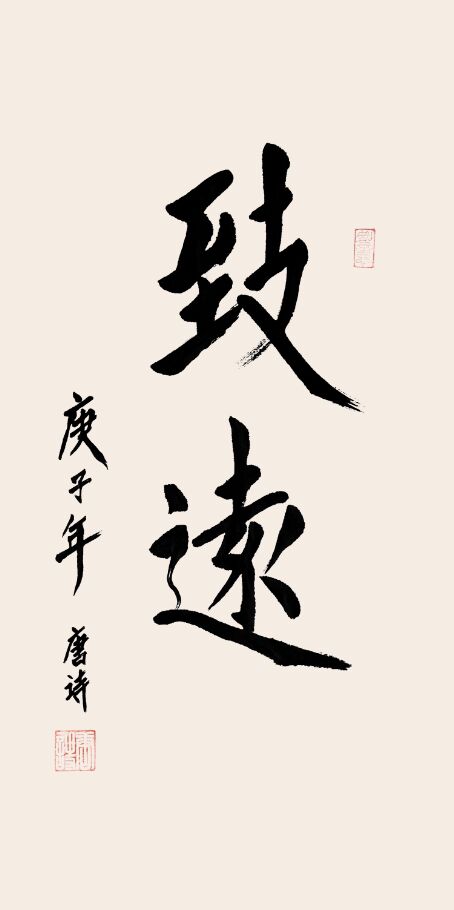 致遠
庚子年 唐诗